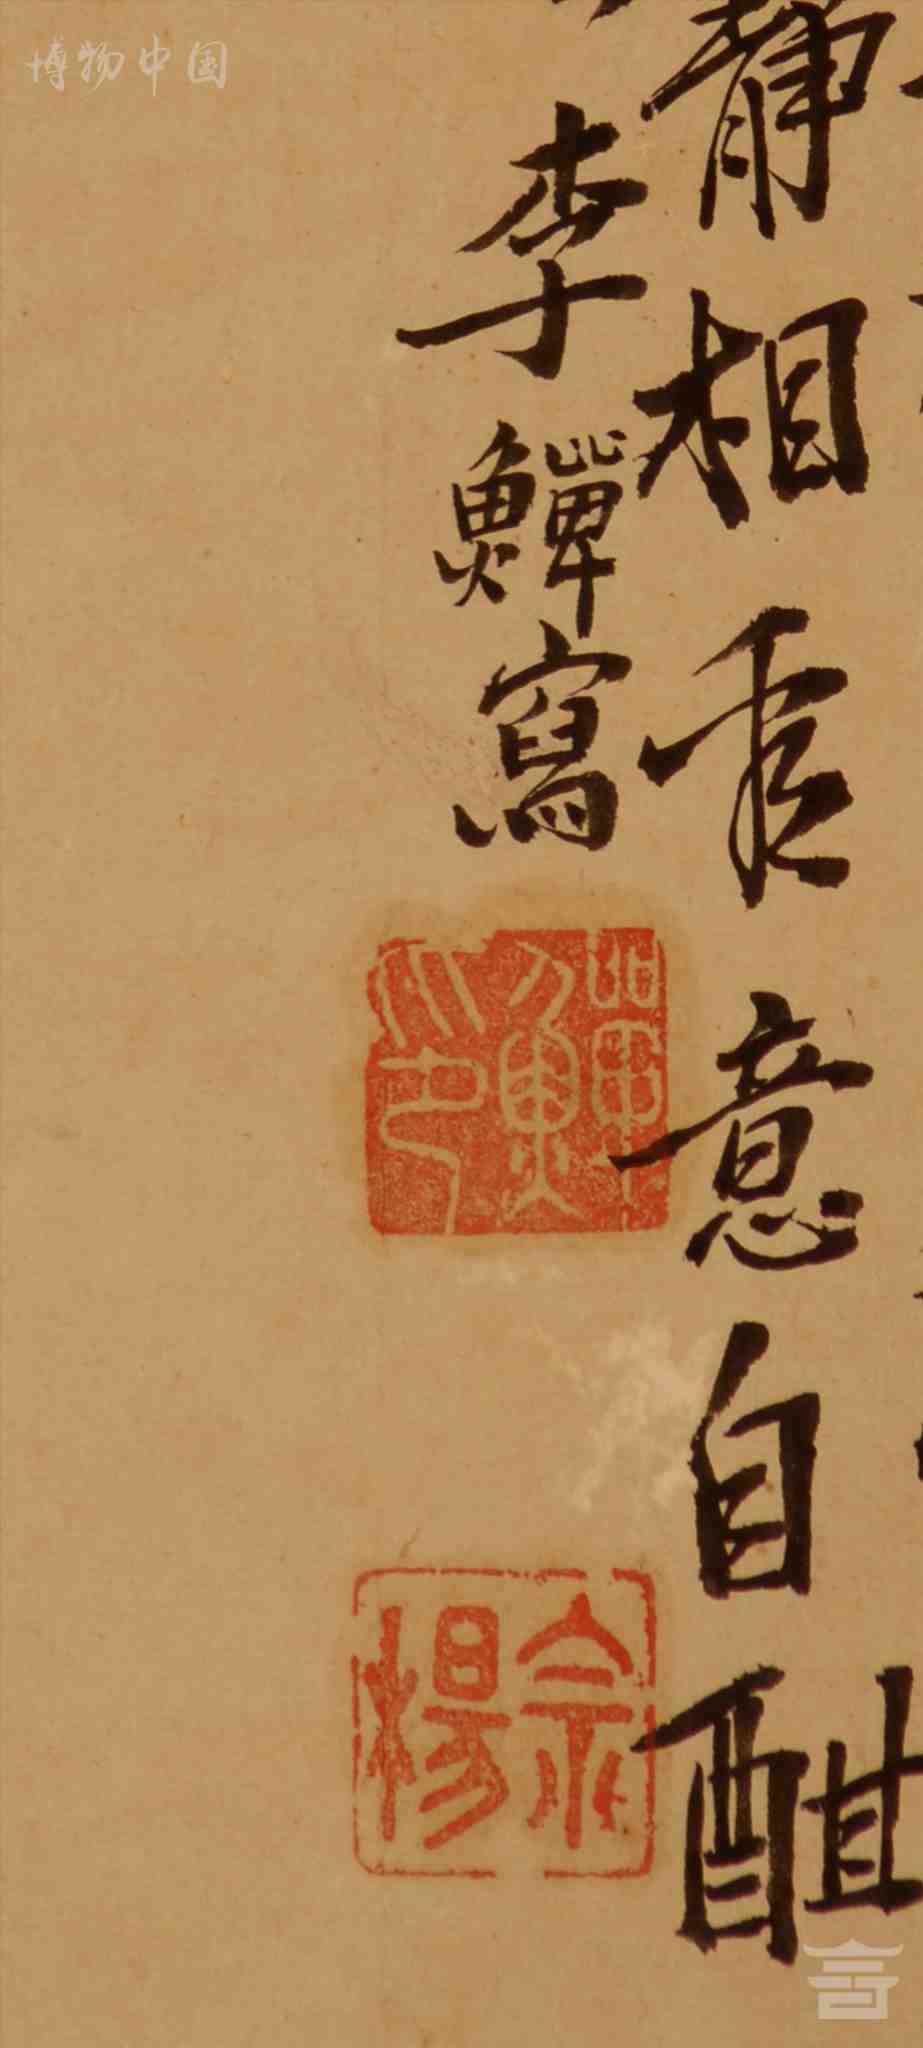 博物中国
靜相看意自酣
李鱓寫
鱓印
宗楊